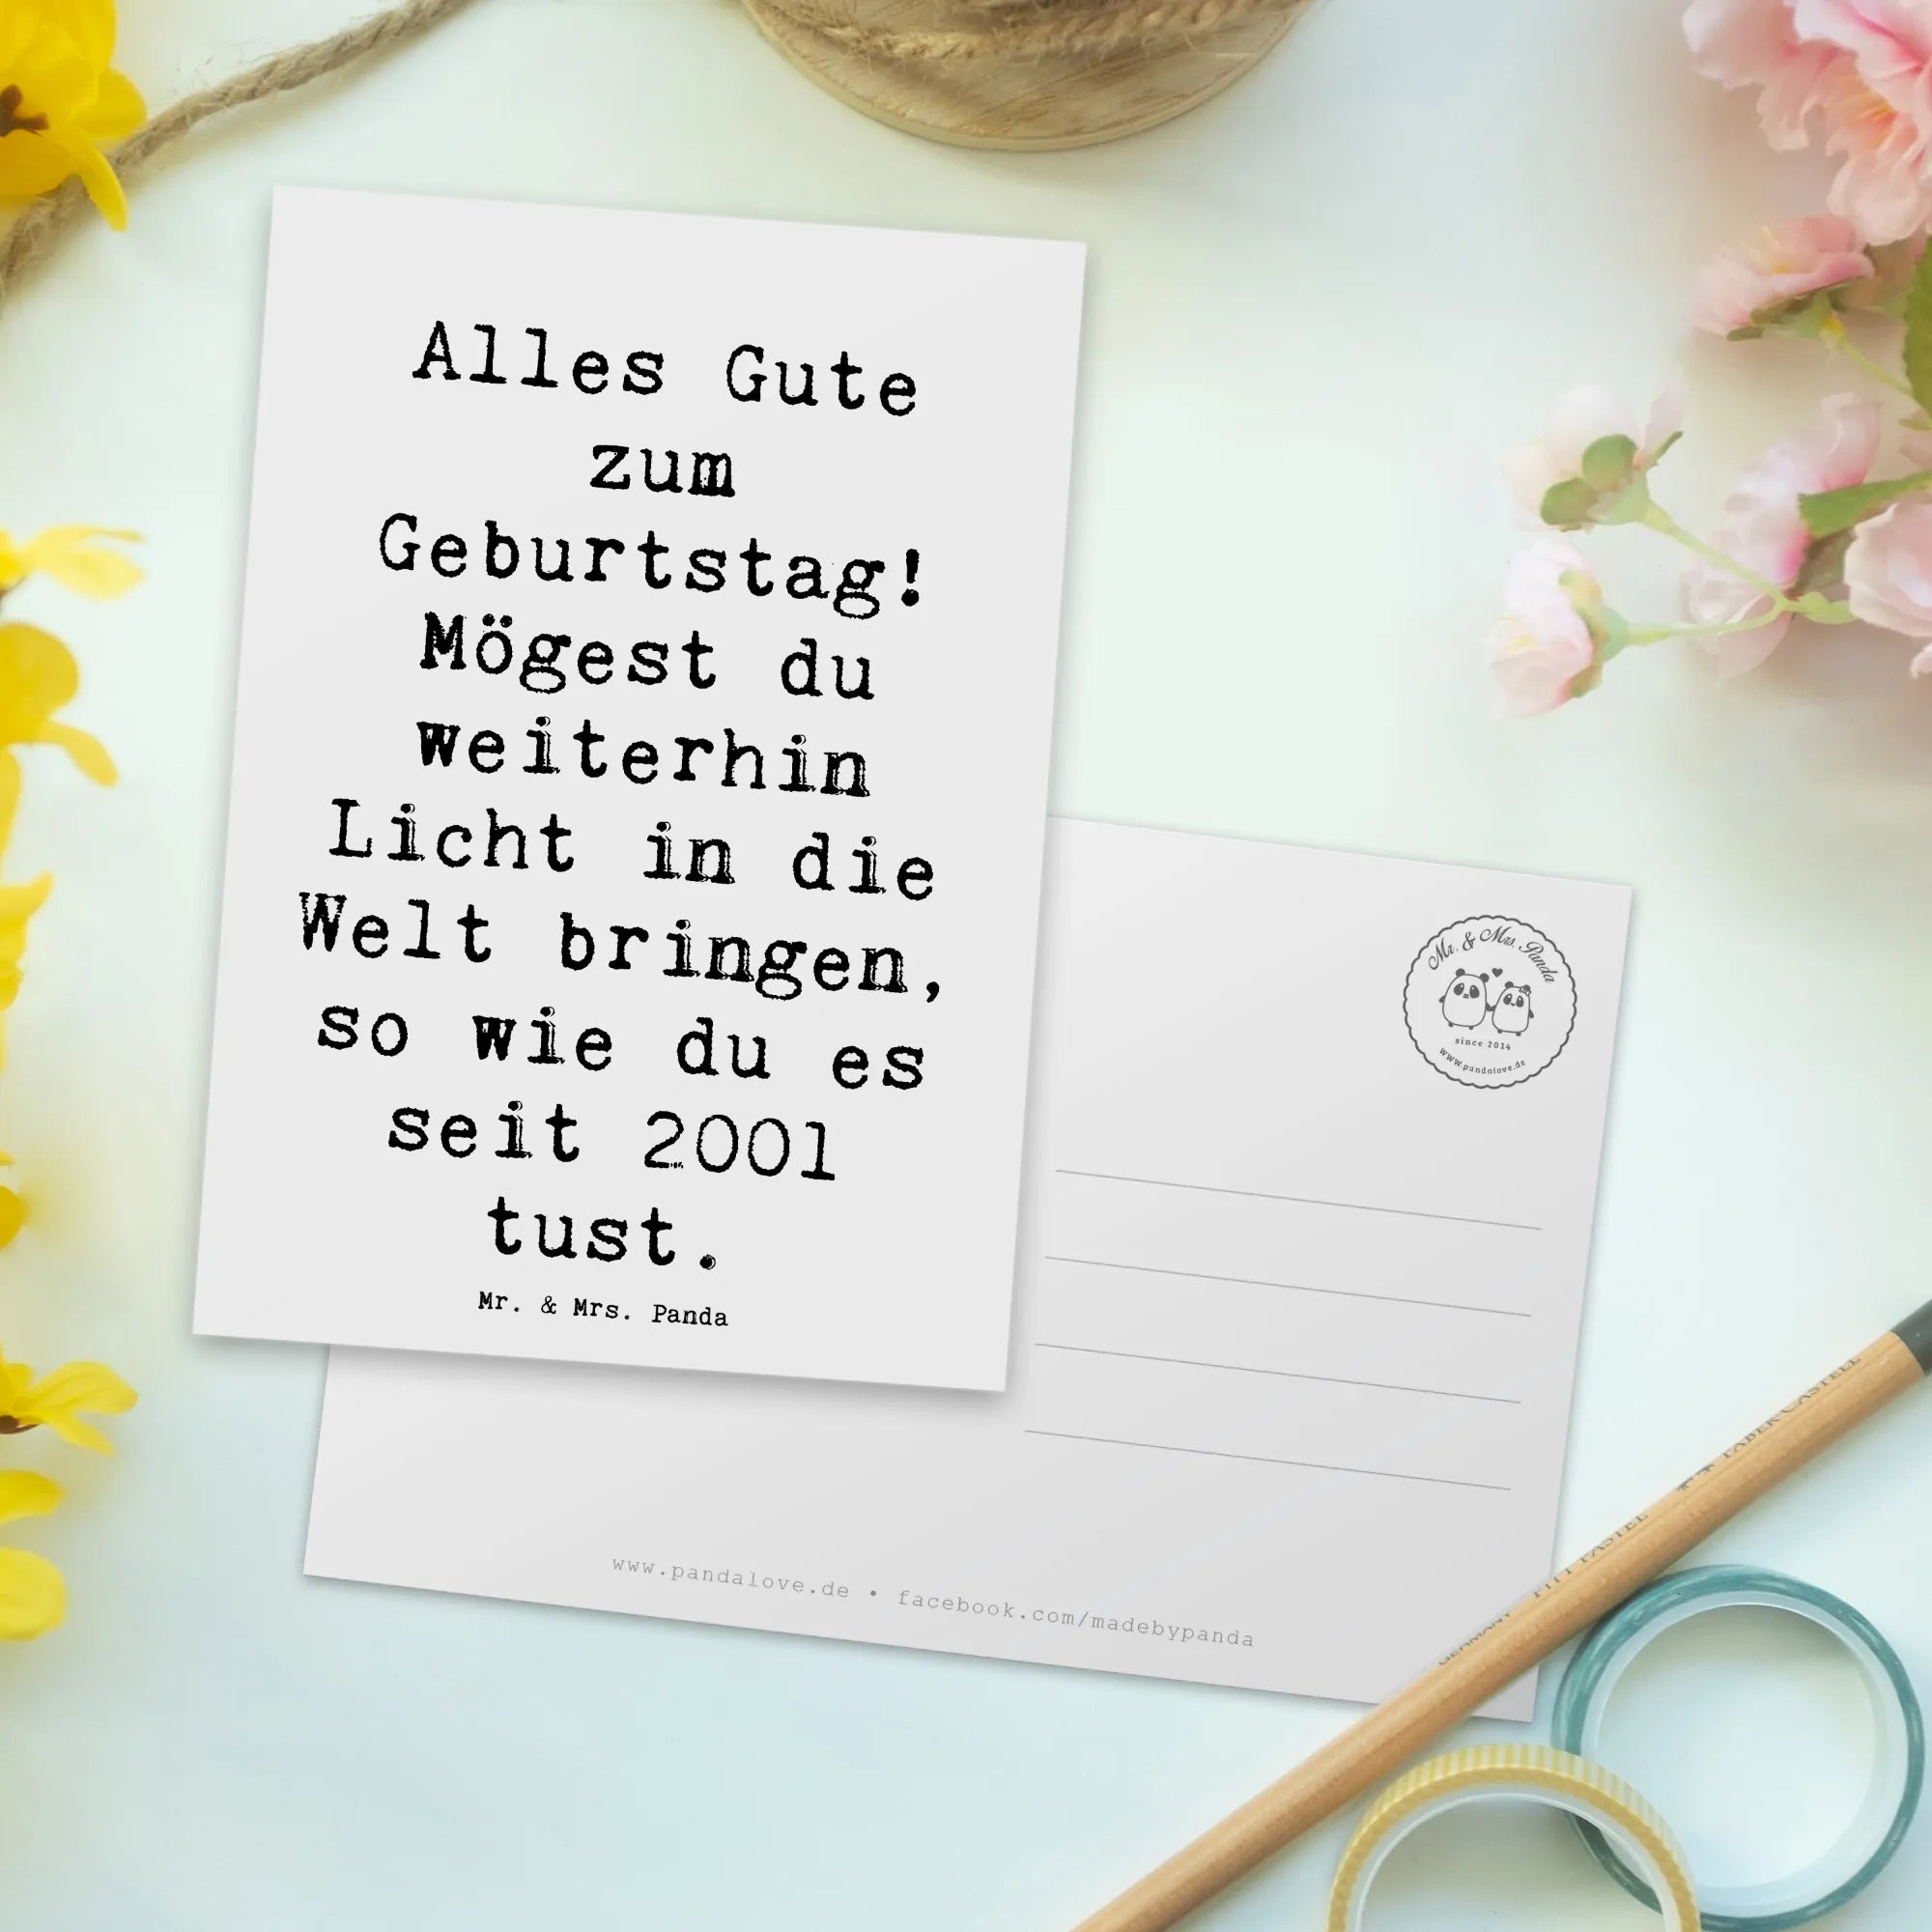 Alles Gute
zum
Geburtstag!
Mögest du
weiterhin
Licht in die
Welt bringen,
so wie du es
seit 2001
tust.
Mr. & Mrs. Panda
Mr. & Mrs. Panda
since 2014
www.pandalove.de
www.pandalove.de • facebook.com/madebypanda
GERMANY PITT PASTEL FABER-CASTELL